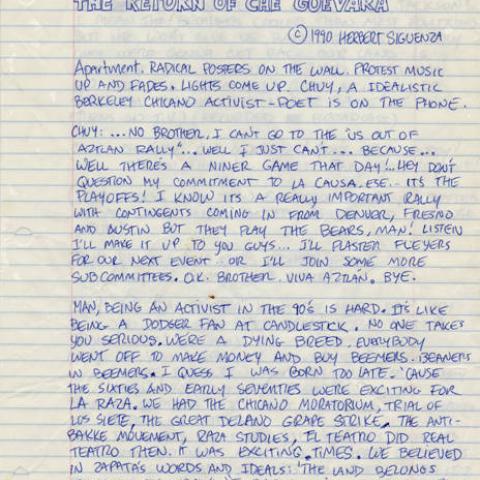 THE RETURN OF CHE GUEVARA
© 1990 HERBERT SIGUENZA
Apartment. RADICAL POSTERS ON THE WALL. PROTEST MUSIC
UP AND FADES. LIGHTS COME UP. CHUY, A IDEALISTIC
BERKELEY CHICANO ACTIVIST-POET IS ON THE PHONE.
CHUY: ... NO BROTHER, I CAN'T GO TO THE "US OUT OF
AZTLAN RALLY"... WELL I JUST CAN'T... BECAUSE...
WELL THERE'S A NINER GAME THAT DAY!.. HEY DON'T
QUESTION MY COMMITMENT TO LA CAUSA, ESE.. IT'S THE
PLAYOFFS! I KNOW ITS A REALLY IMPORTANT RALLY
WITH CONTINGENTS COMING IN FROM DENVER, FRESNO
AND AUSTIN BUT THEY PLAY THE BEARS, MAN! LISTEN
I'LL MAKE IT UP TO YOU GUYS... I'LL PLASTER FLEYERS
FOR OUR NEXT EVENT.. OR I'LL JOIN SOME MORE
SUBCOMMITTEES. O.K. BROTHER. VIVA AZTLÁN. BYE.
MAN, BEING AN ACTIVIST IN THE 90'S IS HARD. IT'S LIKE
BEING A DODGER FAN AT CANDLESTICK. NO ONE TAKES
YOU SERIOUS. WE'RE A DYING BREED. EVERYBODY
WENT OFF TO MAKE MONEY AND BUY BEEMERS. BEANERS
IN BEEMERS. I GUESS I WAS BORN TOO LATE. 'CAUSE
THE SIXTIES AND EARLY SEVENTIES WERE EXCITING FOR
LA RAZA. WE HAD THE CHICANO MORATORIUM, TRIAL OF
LOS SIETE, THE GREAT DELANO GRAPE STRIKE, THE ANTI-
BAKKE MOVEMENT, RAZA STUDIES, EL TEATRO DID REAL
TEATRO THEN. IT WAS EXCITING TIMES. WE BELIEVED
IN ZAPATA'S WORDS AND IDEALS: 'THE LAND BELONGS